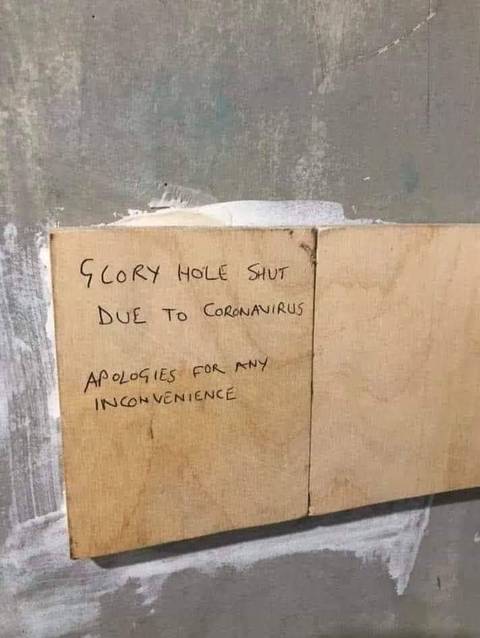 GLORY HOLE SHUT
DUE TO CORONAVIRUS
APOLOGIES FOR ANY
INCONVENIENCE